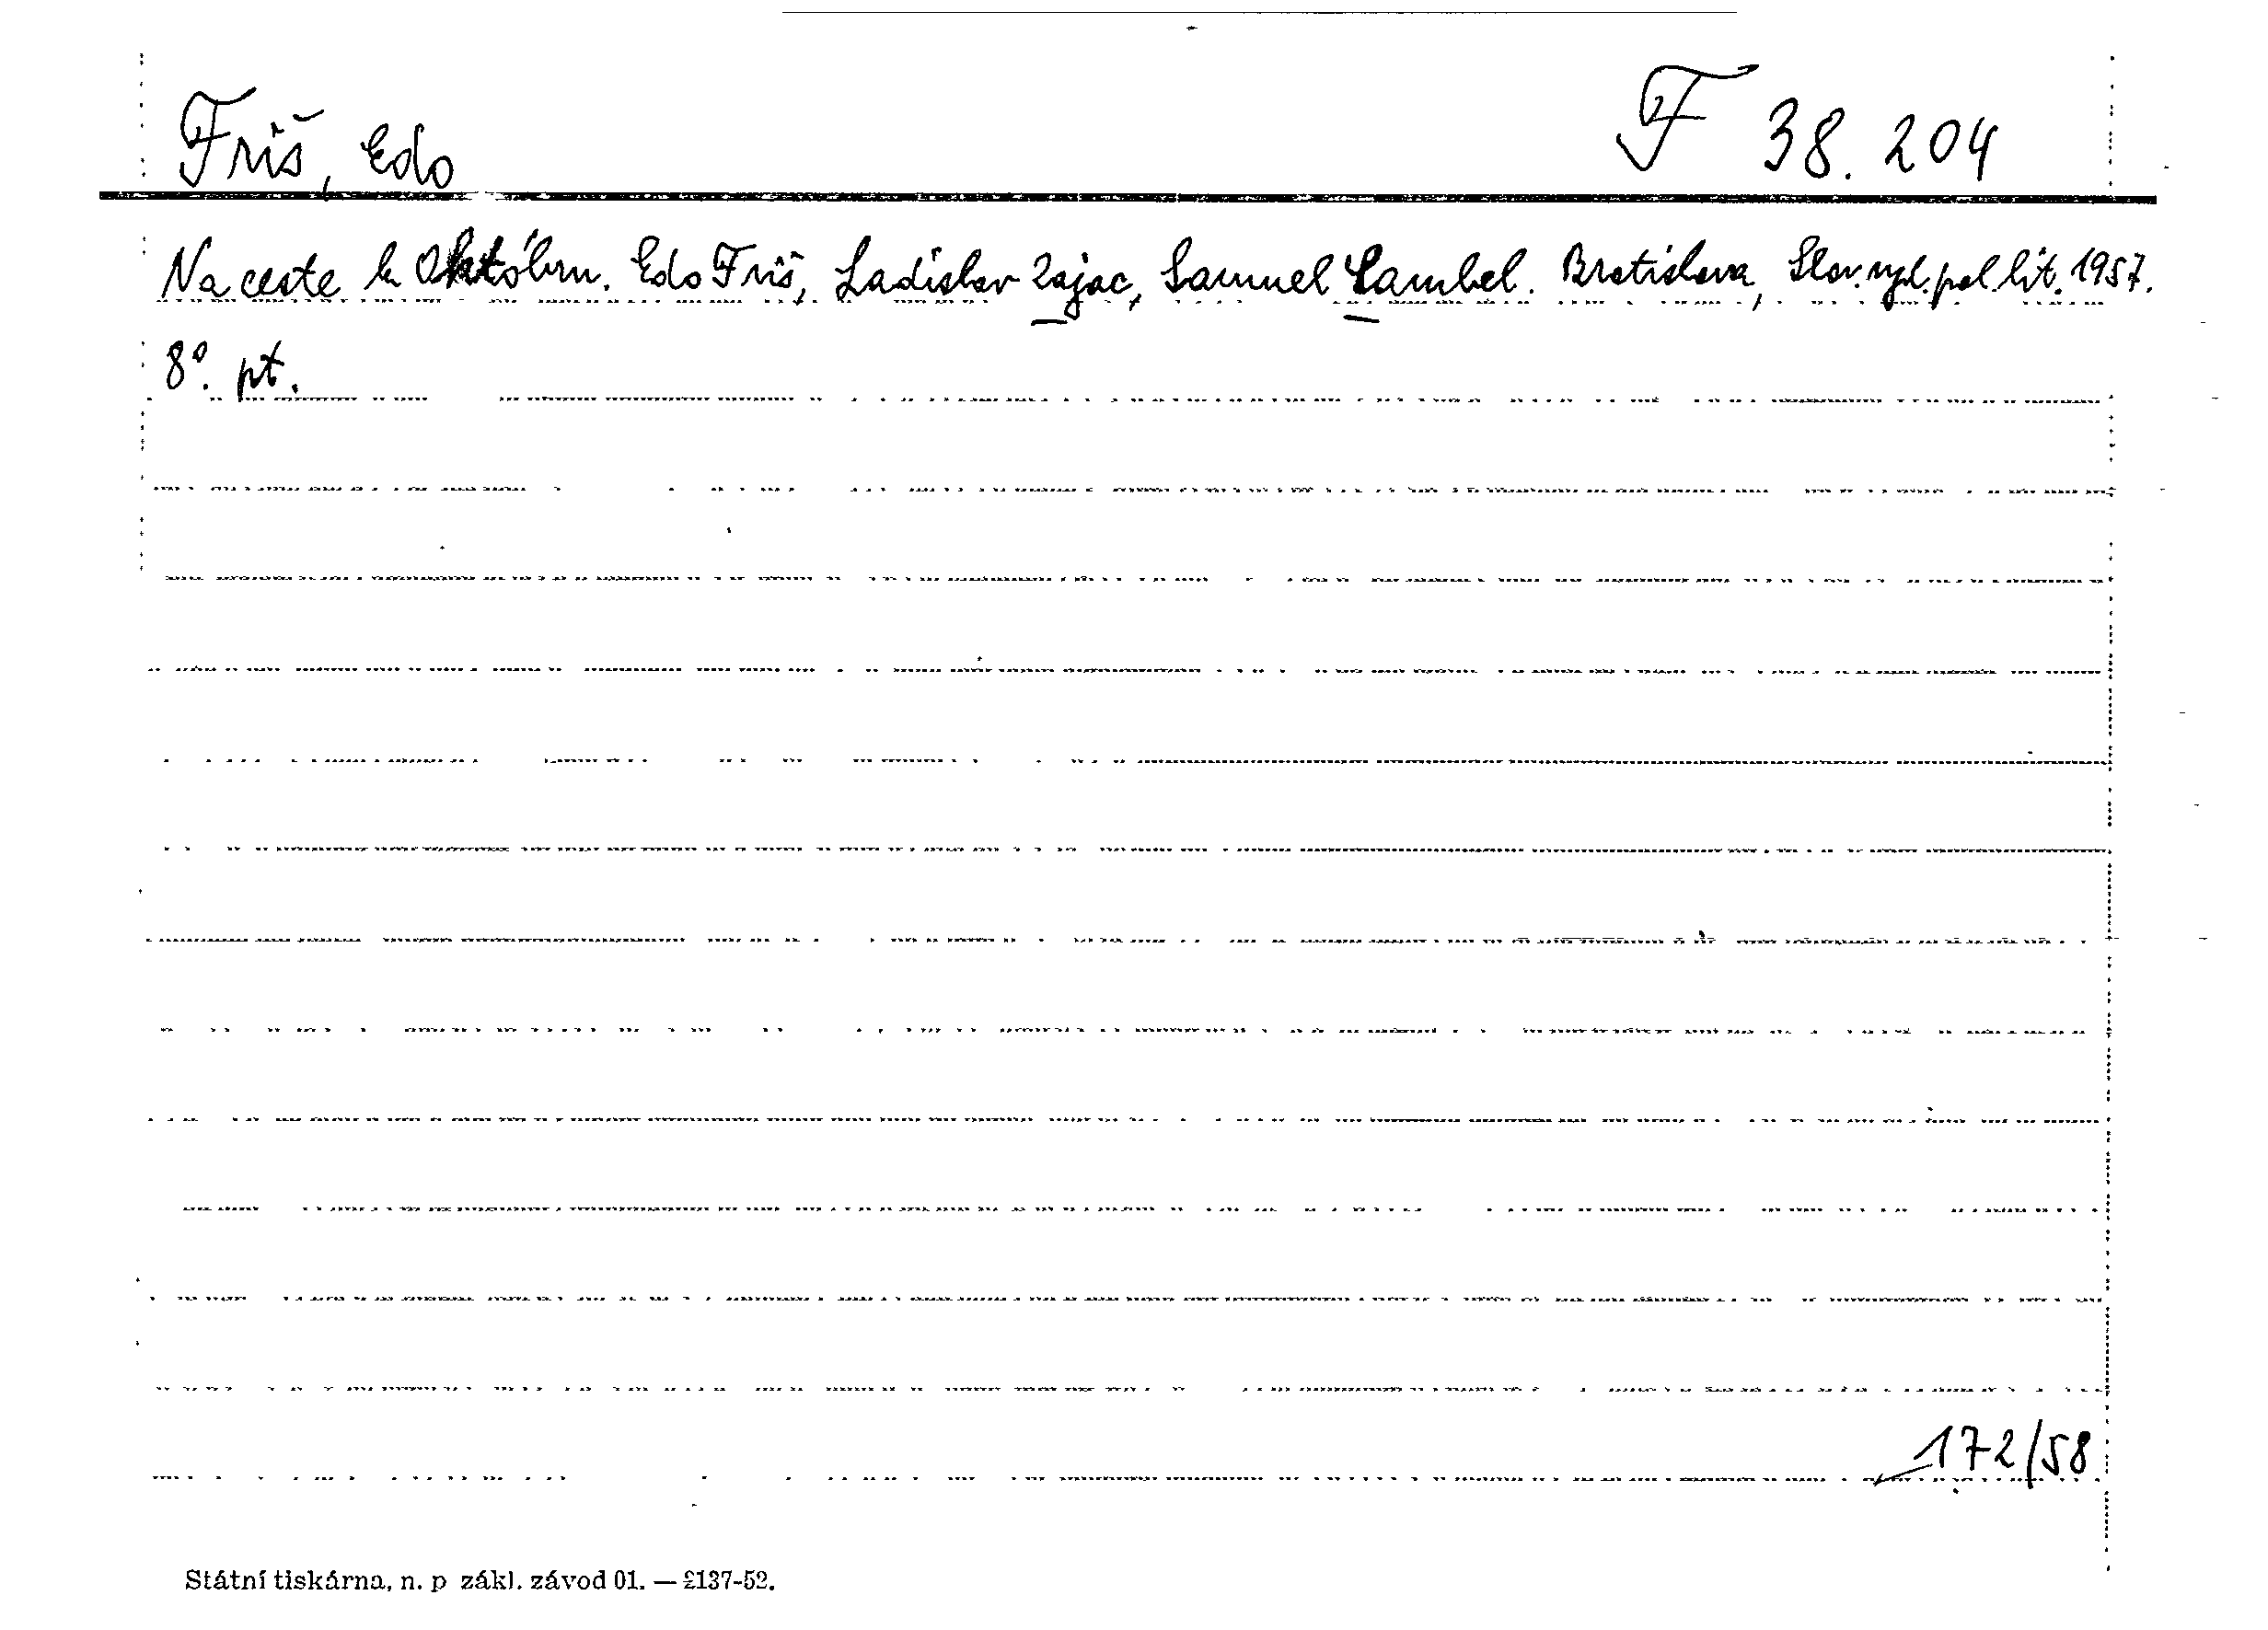 Friš, Edo F 38.204
Na ceste k Októbru. Edo Friš, Ladislav Zajac, Samuel Cambel. Bratislava, Slov. vyd. pol. lit. 1957.
8°. pt.
172/58
Státní tiskárna, n. p zákl. závod 01. — 2137-52.